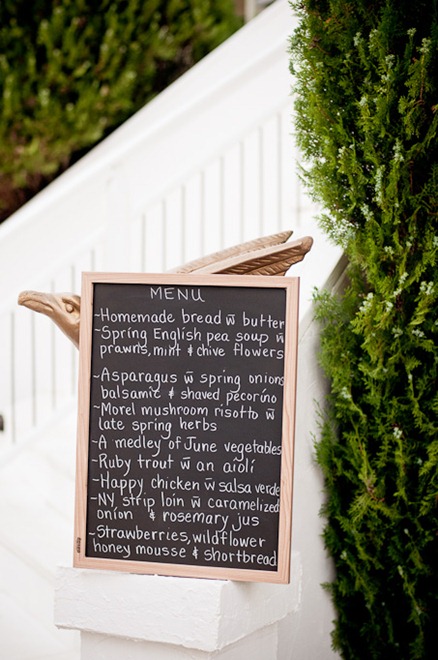 MENU
~Homemade bread w̅ butter
~Spring English pea soup w̅
prawns, mint & chive flowers
~Asparagus w̅ spring onions
balsamic & shaved pecoríno
~Morel mushroom risotto w̅
late spring herbs
~A medley of June vegetables
~Ruby trout w̅ an aíôlí
~Happy chicken w̅ salsa verde
~NY strip loin w̅ caramelized
oníon & rosemary jus
~Strawberries, wildflower
honey mousse & shortbread